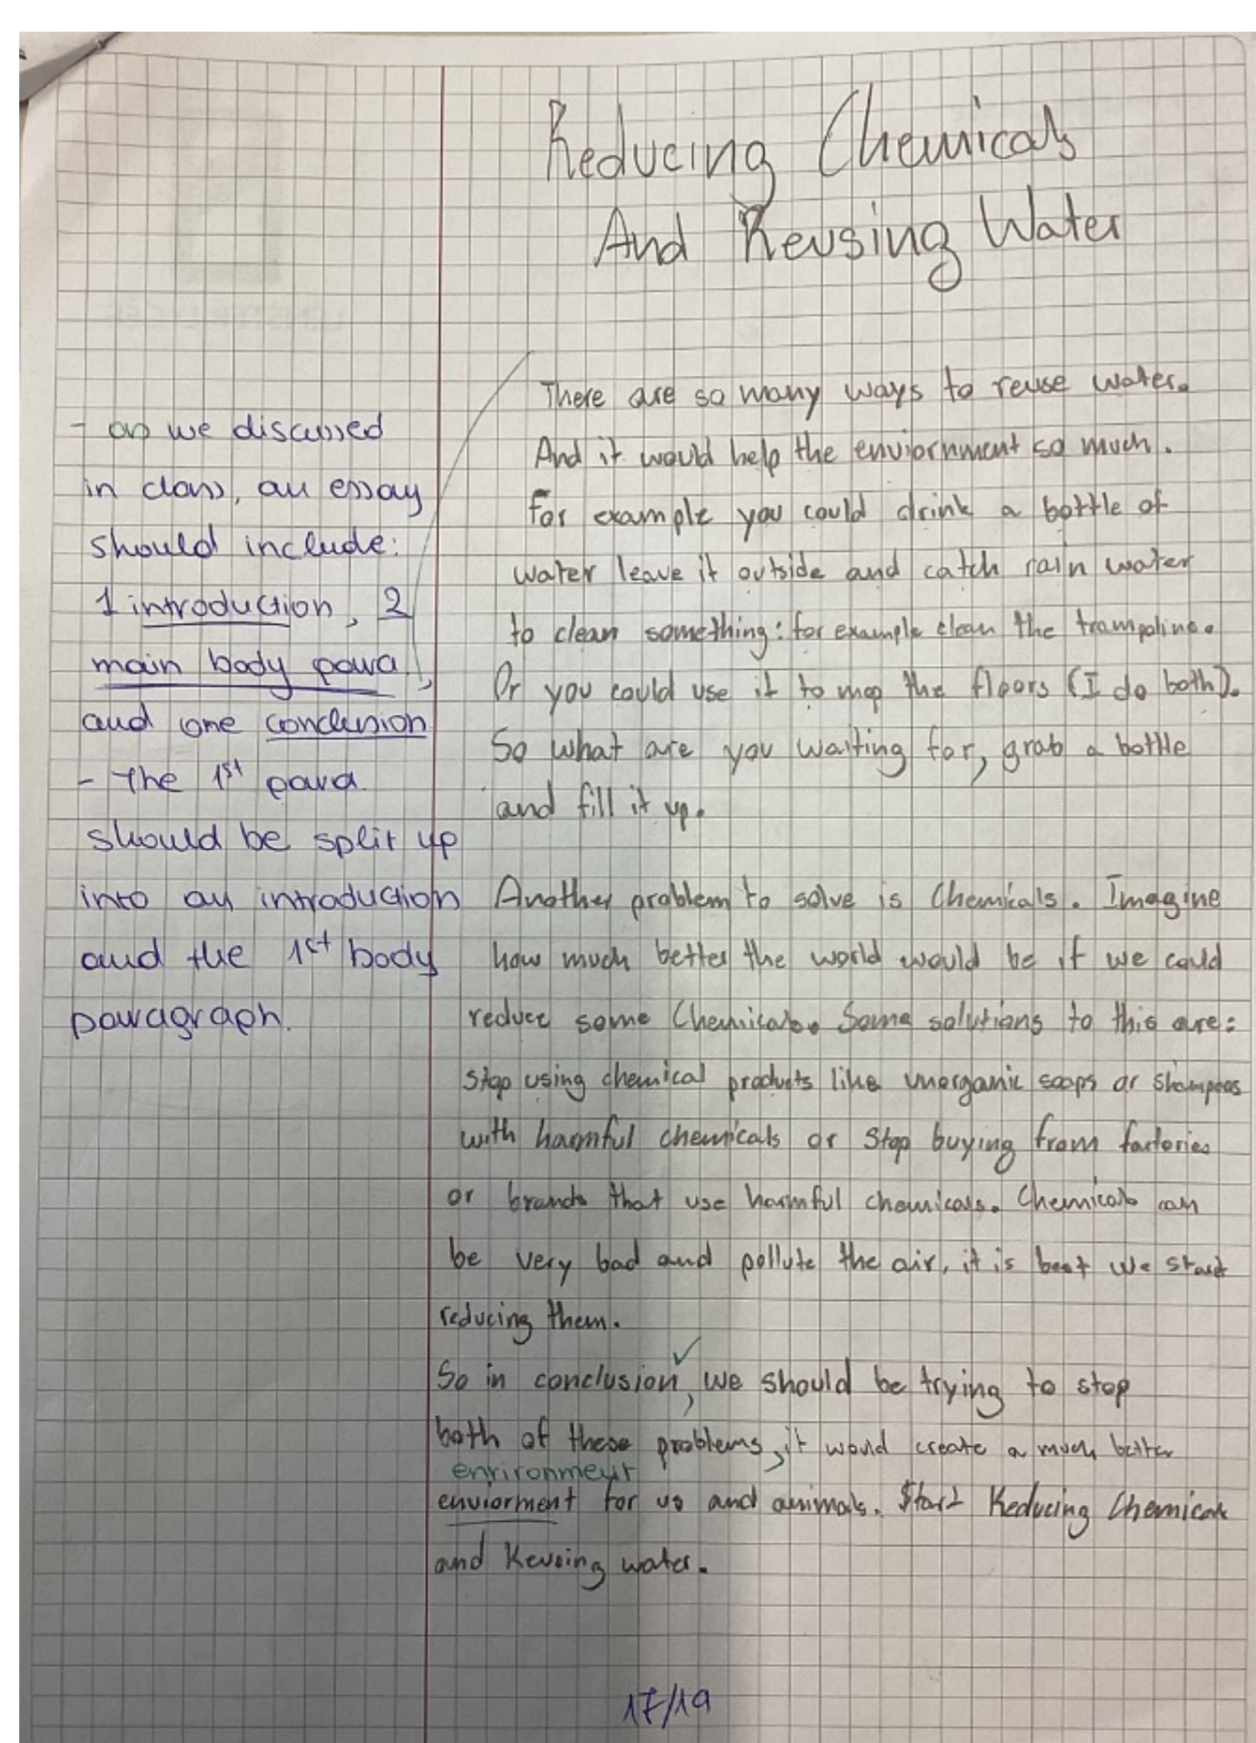 Reducing Chemicals
And Reusing Water
- as we discussed
in class, an essay
should include:
1 introduction, 2
main body para.,
and one conclusion
- The 1st para.
should be split up
into an introduction
and the 1st body
paragraph.
There are so many ways to reuse water.
And it would help the enviornment so much.
For example you could drink a bottle of
water leave it outside and catch rain water
to clean something: for example clean the trampoline.
Or you could use it to mop the floors (I do both).
So what are you waiting for, grab a bottle
and fill it up.
Another problem to solve is Chemicals. Imagine
how much better the world would be if we could
reduce some Chemicals. Some solutions to this are:
Stop using chemical products like unorganic soaps or Shampoos
with harmful chemicals or Stop buying from factories
or brands that use harmful chemicals. Chemicals can
be very bad and pollute the air, it is best we start
reducing them.
So in conclusion, we should be trying to stop
both of these problems, it would create a much better
environment
enviorment for us and animals. Start Reducing Chemicals
and Reusing water.
17/19